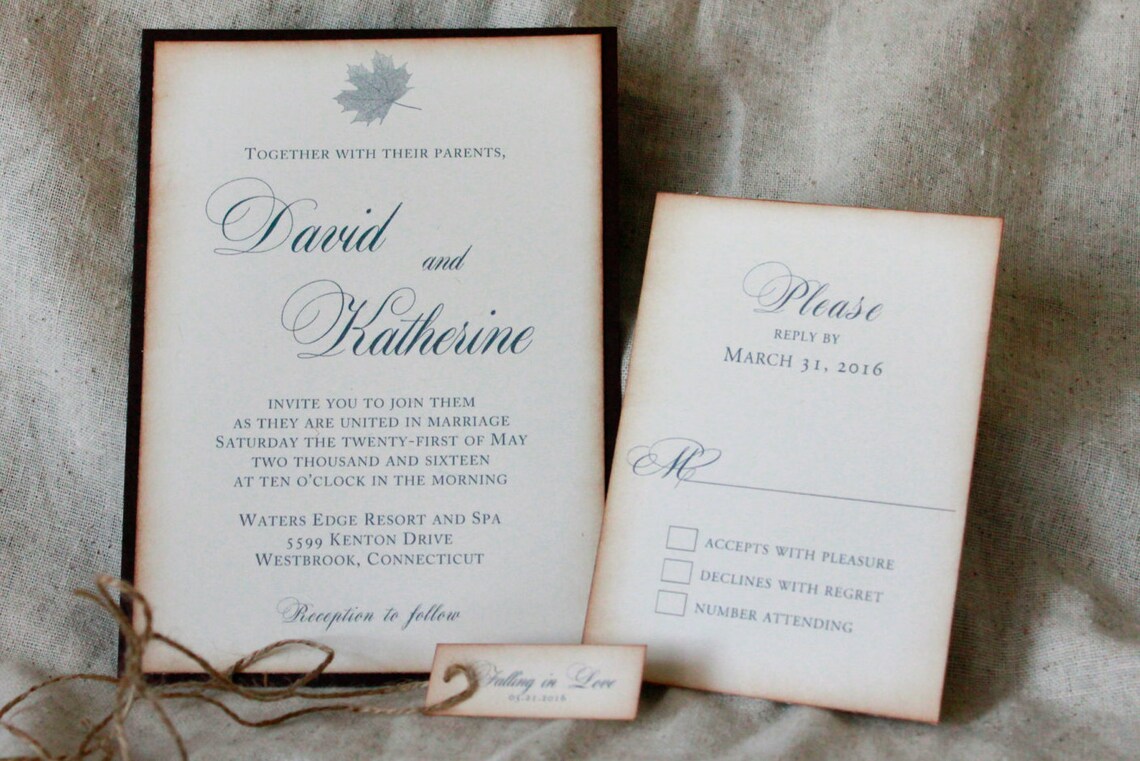 Together with their parents,
David
and
Katherine
invite you to join them
as they are united in marriage
Saturday the twenty-first of May
two thousand and sixteen
at ten o'clock in the morning
Waters Edge Resort and Spa
5599 Kenton Drive
Westbrook, Connecticut
Reception to follow
Please
reply by
March 31, 2016
M
accepts with pleasure
declines with regret
number attending
Falling in Love
05.21.2016